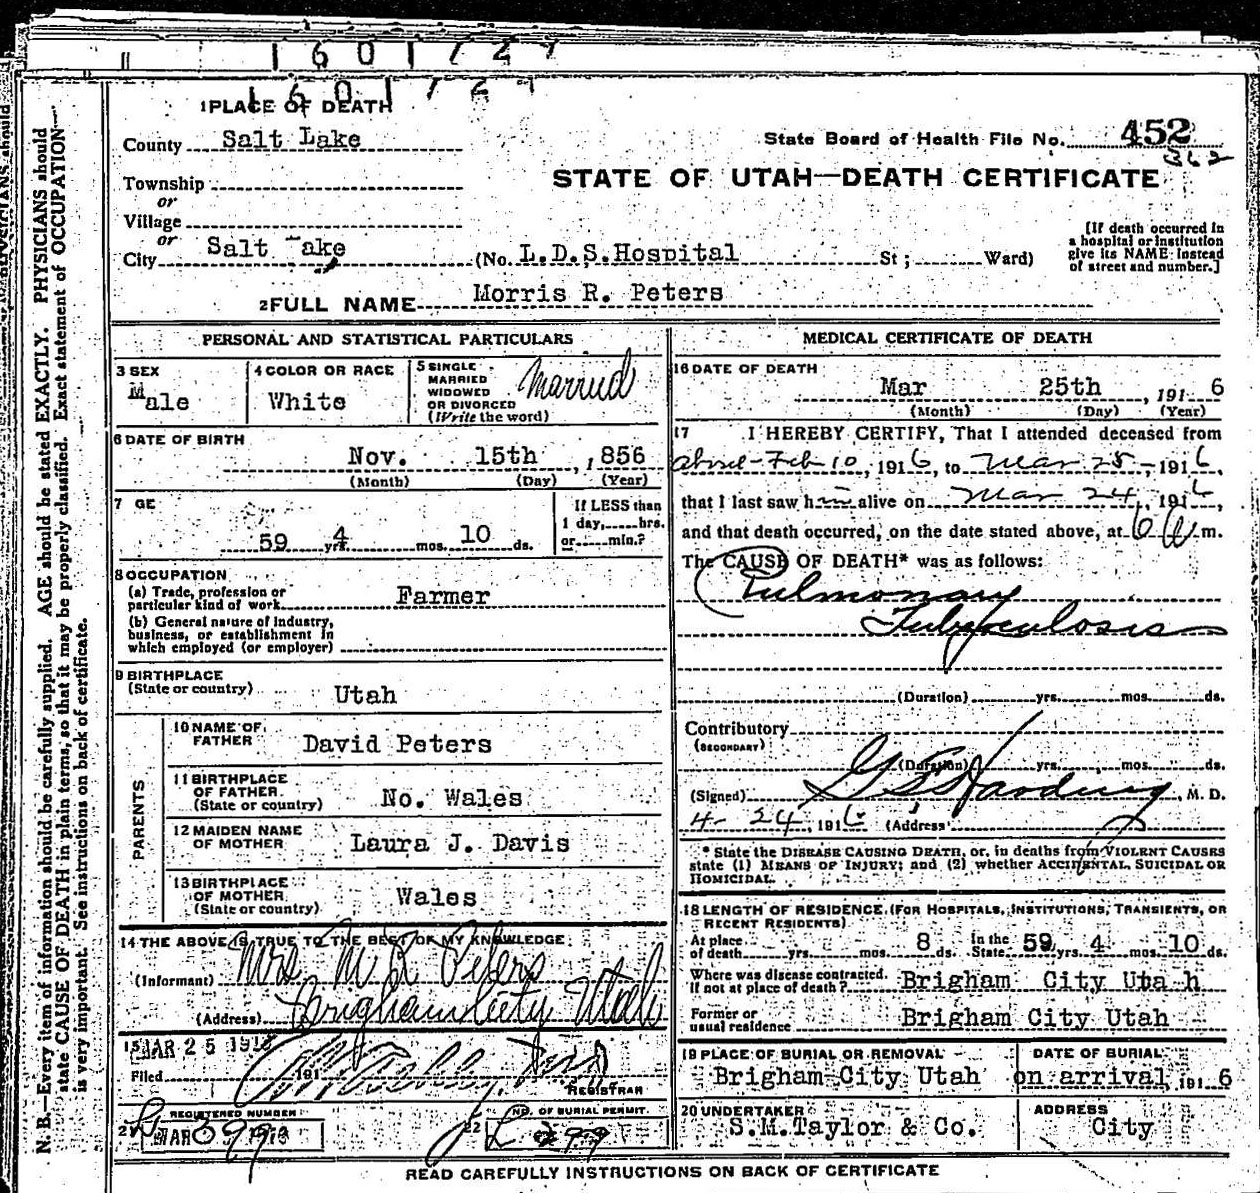 1601727
160172
1 PLACE OF DEATH
County Salt Lake
State Board of Health File No. 452
362
Township
or
Village
or
City Salt ake (No. L.D.S.Hospital St; Ward)
STATE OF UTAH—DEATH CERTIFICATE
[If death occurred in
a hospital or institution
give its NAME instead
of street and number.]
2 FULL NAME Morris R. Peters
PERSONAL AND STATISTICAL PARTICULARS
3 SEX
Male
4 COLOR OR RACE
White
5 SINGLE
MARRIED
WIDOWED
OR DIVORCED
(Write the word)
Married
6 DATE OF BIRTH
Nov. 15th, 1856
(Month) (Day) (Year)
7 GE
59 yrs. 4 mos. 10 ds.
If LESS than
1 day, hrs.
or min.?
8 OCCUPATION
(a) Trade, profession or
particular kind of work Farmer
(b) General nature of industry,
business, or establishment in
which employed (or employer)
9 BIRTHPLACE
(State or country) Utah
PARENTS
10 NAME OF
FATHER David Peters
11 BIRTHPLACE
OF FATHER
(State or country) No. Wales
12 MAIDEN NAME
OF MOTHER Laura J. Davis
13 BIRTHPLACE
OF MOTHER
(State or country) Wales
14 THE ABOVE IS TRUE TO THE BEST OF MY KNOWLEDGE
(Informant) Mrs M R Peters
(Address) Brigham City Utah
15 MAR 25 191
Filed 191
REGISTRAR
REGISTERED NUMBER
21 L 399
22 NO. OF BURIAL PERMIT.
L 399
MEDICAL CERTIFICATE OF DEATH
16 DATE OF DEATH
Mar 25th, 1916
(Month) (Day) (Year)
17 I HEREBY CERTIFY, That I attended deceased from
Feb 10, 1916, to Mar 25, 1916,
that I last saw him alive on Mar 24, 1916,
and that death occurred, on the date stated above, at 6 a m.
The CAUSE OF DEATH* was as follows:
Pulmonary
Tuberculosis
(Duration) yrs. mos. ds.
Contributory
(SECONDARY)
(Duration) yrs. mos. ds.
(Signed) Harding, M. D.
4-24, 1916 (Address)
* State the DISEASE CAUSING DEATH, or, in deaths from VIOLENT CAUSES
state (1) MEANS OF INJURY; and (2) whether ACCIDENTAL, SUICIDAL OR
HOMICIDAL.
18 LENGTH OF RESIDENCE (FOR HOSPITALS, INSTITUTIONS, TRANSIENTS, OR
RECENT RESIDENTS)
At place
of death yrs. mos. 8 ds. In the
State 59 yrs. 4 mos. 10 ds.
Where was disease contracted,
If not at place of death? Brigham City Uta h
Former or
usual residence Brigham City Utah
19 PLACE OF BURIAL OR REMOVAL
Brigham City Utah
DATE OF BURIAL
on arrival, 1916
20 UNDERTAKER
S.M.Taylor & Co.
ADDRESS
City
READ CAREFULLY INSTRUCTIONS ON BACK OF CERTIFICATE
N. B.—Every item of information should be carefully supplied. AGE should be stated EXACTLY. PHYSICIANS should
state CAUSE OF DEATH in plain terms, so that it may be properly classified. Exact statement of OCCUPATION
is very important. See instructions on back of certificate.